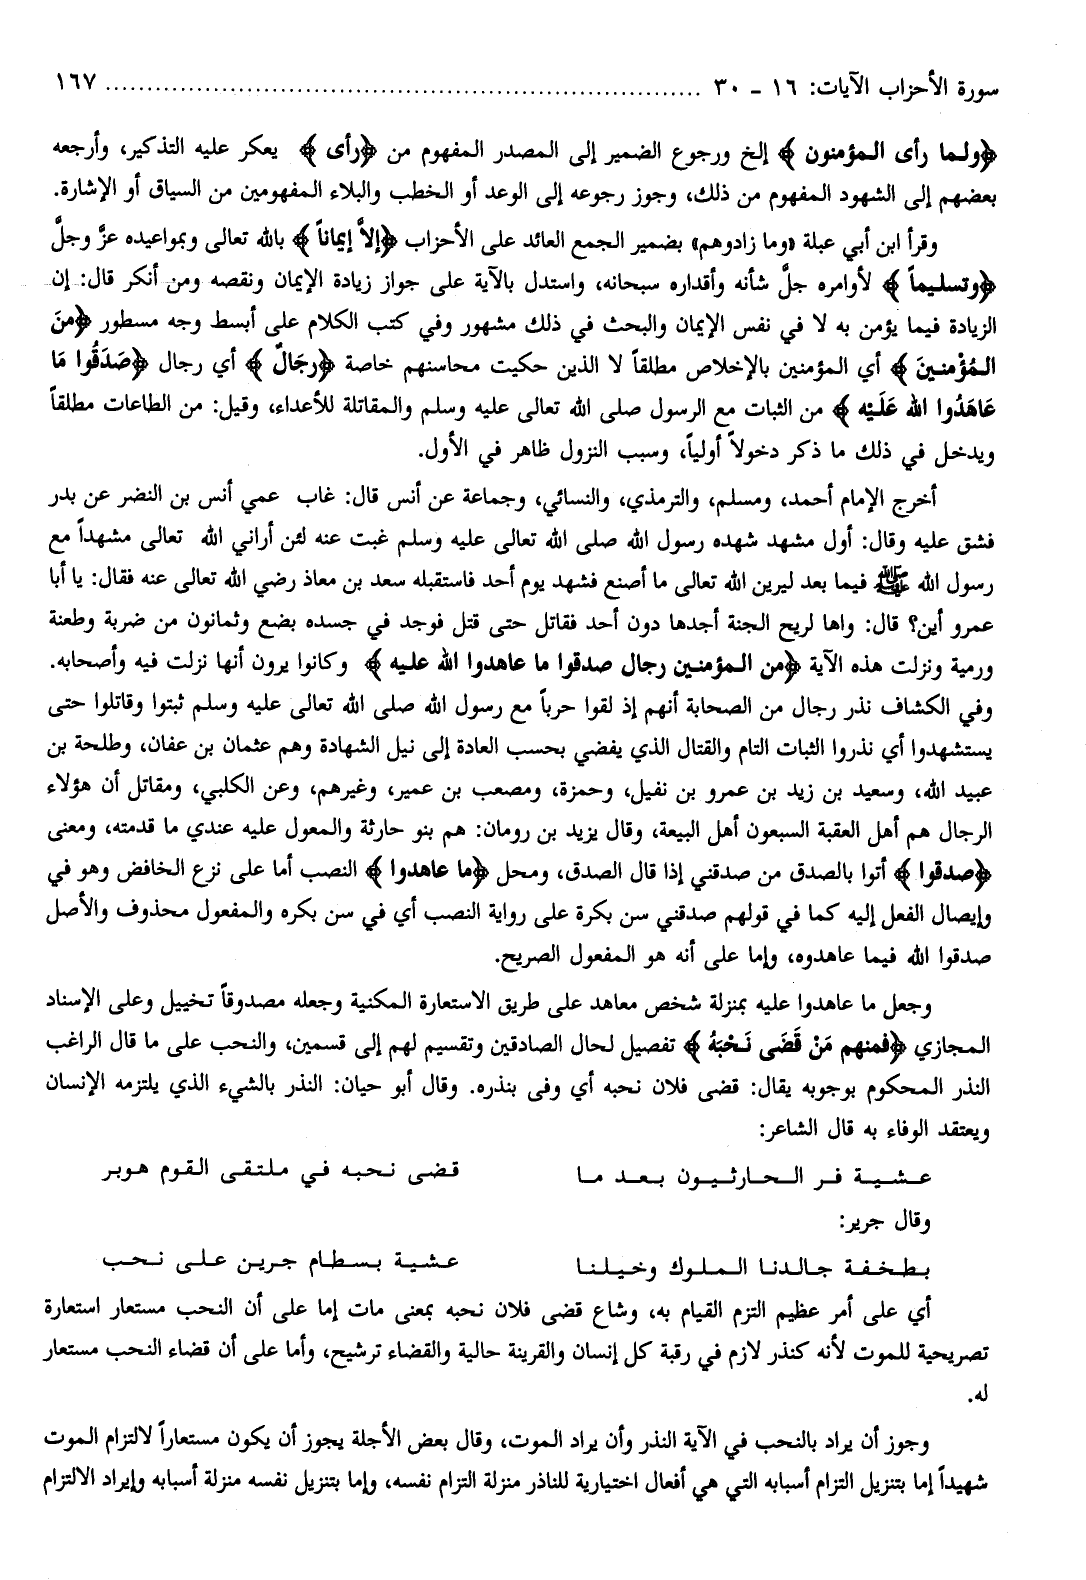 سورة الأحزاب الآيات: ١٦ ـ ٣٠ ........................................................................ ١٦٧
﴿ولما رأى المؤمنون﴾ إلخ ورجوع الضمير إلى المصدر المفهوم من ﴿رأى﴾ يعكر عليه التذكير، وأرجعه
بعضهم إلى الشهود المفهوم من ذلك، وجوز رجوعه إلى الوعد أو الخطب والبلاء المفهومين من السياق أو الإشارة.
وقرأ ابن أبي عبلة «وما زادوهم» بضمير الجمع العائد على الأحزاب ﴿إلاَّ إيماناً﴾ بالله تعالى وبمواعيده عزَّ وجلَّ
﴿وتسليماً﴾ لأوامره جلَّ شأنه وأقداره سبحانه، واستدل بالآية على جواز زيادة الإيمان ونقصه ومن أنكر قال: إن
الزيادة فيما يؤمن به لا في نفس الإيمان والبحث في ذلك مشهور وفي كتب الكلام على أبسط وجه مسطور ﴿منَ
المُؤْمنينَ﴾ أي المؤمنين بالإخلاص مطلقاً لا الذين حكيت محاسنهم خاصة ﴿رجَالٌ﴾ أي رجال ﴿صَدَقُوا مَا
عَاهَدُوا الله عَلَيْه﴾ من الثبات مع الرسول صلى الله تعالى عليه وسلم والمقاتلة للأعداء، وقيل: من الطاعات مطلقاً
ويدخل في ذلك ما ذكر دخولاً أولياً، وسبب النزول ظاهر في الأول.
أخرج الإمام أحمد، ومسلم، والترمذي، والنسائي، وجماعة عن أنس قال: غاب عمي أنس بن النضر عن بدر
فشق عليه وقال: أول مشهد شهده رسول الله صلى الله تعالى عليه وسلم غبت عنه لئن أراني الله تعالى مشهداً مع
رسول الله ﷺ فيما بعد ليرين الله تعالى ما أصنع فشهد يوم أحد فاستقبله سعد بن معاذ رضي الله تعالى عنه فقال: يا أبا
عمرو أين؟ قال: واها لريح الجنة أجدها دون أحد فقاتل حتى قتل فوجد في جسده بضع وثمانون من ضربة وطعنة
ورمية ونزلت هذه الآية ﴿من المؤمنين رجال صدقوا ما عاهدوا الله عليه﴾ وكانوا يرون أنها نزلت فيه وأصحابه.
وفي الكشاف نذر رجال من الصحابة أنهم إذ لقوا حرباً مع رسول الله صلى الله تعالى عليه وسلم ثبتوا وقاتلوا حتى
يستشهدوا أي نذروا الثبات التام والقتال الذي يفضي بحسب العادة إلى نيل الشهادة وهم عثمان بن عفان، وطلحة بن
عبيد الله، وسعيد بن زيد بن عمرو بن نفيل، وحمزة، ومصعب بن عمير، وغيرهم، وعن الكلبي، ومقاتل أن هؤلاء
الرجال هم أهل العقبة السبعون أهل البيعة، وقال يزيد بن رومان: هم بنو حارثة والمعول عليه عندي ما قدمته، ومعنى
﴿صدقوا﴾ أتوا بالصدق من صدقني إذا قال الصدق، ومحل ﴿ما عاهدوا﴾ النصب أما على نزع الخافض وهو في
وإيصال الفعل إليه كما في قولهم صدقني سن بكرة على رواية النصب أي في سن بكره والمفعول محذوف والأصل
صدقوا الله فيما عاهدوه، وإما على أنه هو المفعول الصريح.
وجعل ما عاهدوا عليه بمنزلة شخص معاهد على طريق الاستعارة المكنية وجعله مصدوقاً تخييل وعلى الإسناد
المجازي ﴿فمنهم مَنْ قَضَى نَحْبَهُ﴾ تفصيل لحال الصادقين وتقسيم لهم إلى قسمين، والنحب على ما قال الراغب
النذر المحكوم بوجوبه يقال: قضى فلان نحبه أي وفى بنذره. وقال أبو حيان: النذر بالشيء الذي يلتزمه الإنسان
ويعتقد الوفاء به قال الشاعر:
عشية فر الحارثيون بعد ما قضى نحبه في ملتقى القوم هوبر
وقال جرير:
بطخفة جالدنا الملوك وخيلنا عشية بسطام جرين على نحب
أي على أمر عظيم التزم القيام به، وشاع قضى فلان نحبه بمعنى مات إما على أن النحب مستعار استعارة
تصريحية للموت لأنه كنذر لازم في رقبة كل إنسان والقرينة حالية والقضاء ترشيح، وأما على أن قضاء النحب مستعار
له.
وجوز أن يراد بالنحب في الآية النذر وأن يراد الموت، وقال بعض الأجلة يجوز أن يكون مستعاراً لالتزام الموت
شهيداً إما بتنزيل التزام أسبابه التي هي أفعال اختيارية للناذر منزلة التزام نفسه، وإما بتنزيل نفسه منزلة أسبابه وإيراد الالتزام